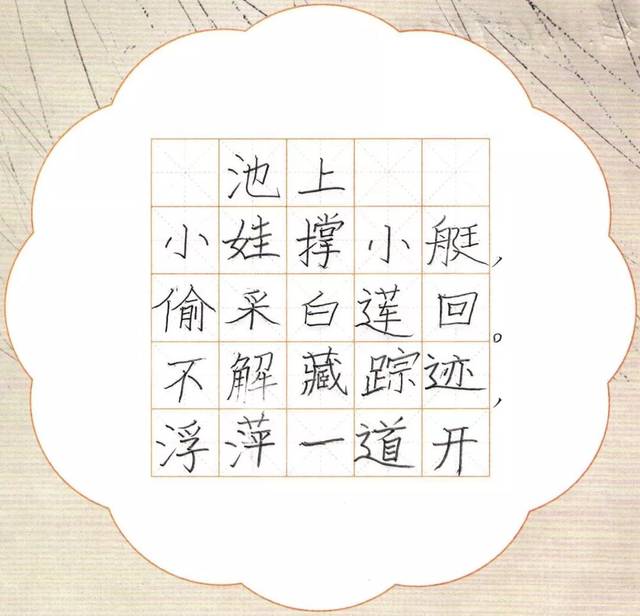 池上
小娃撑小艇，
偷采白莲回。
不解藏踪迹，
浮萍一道开